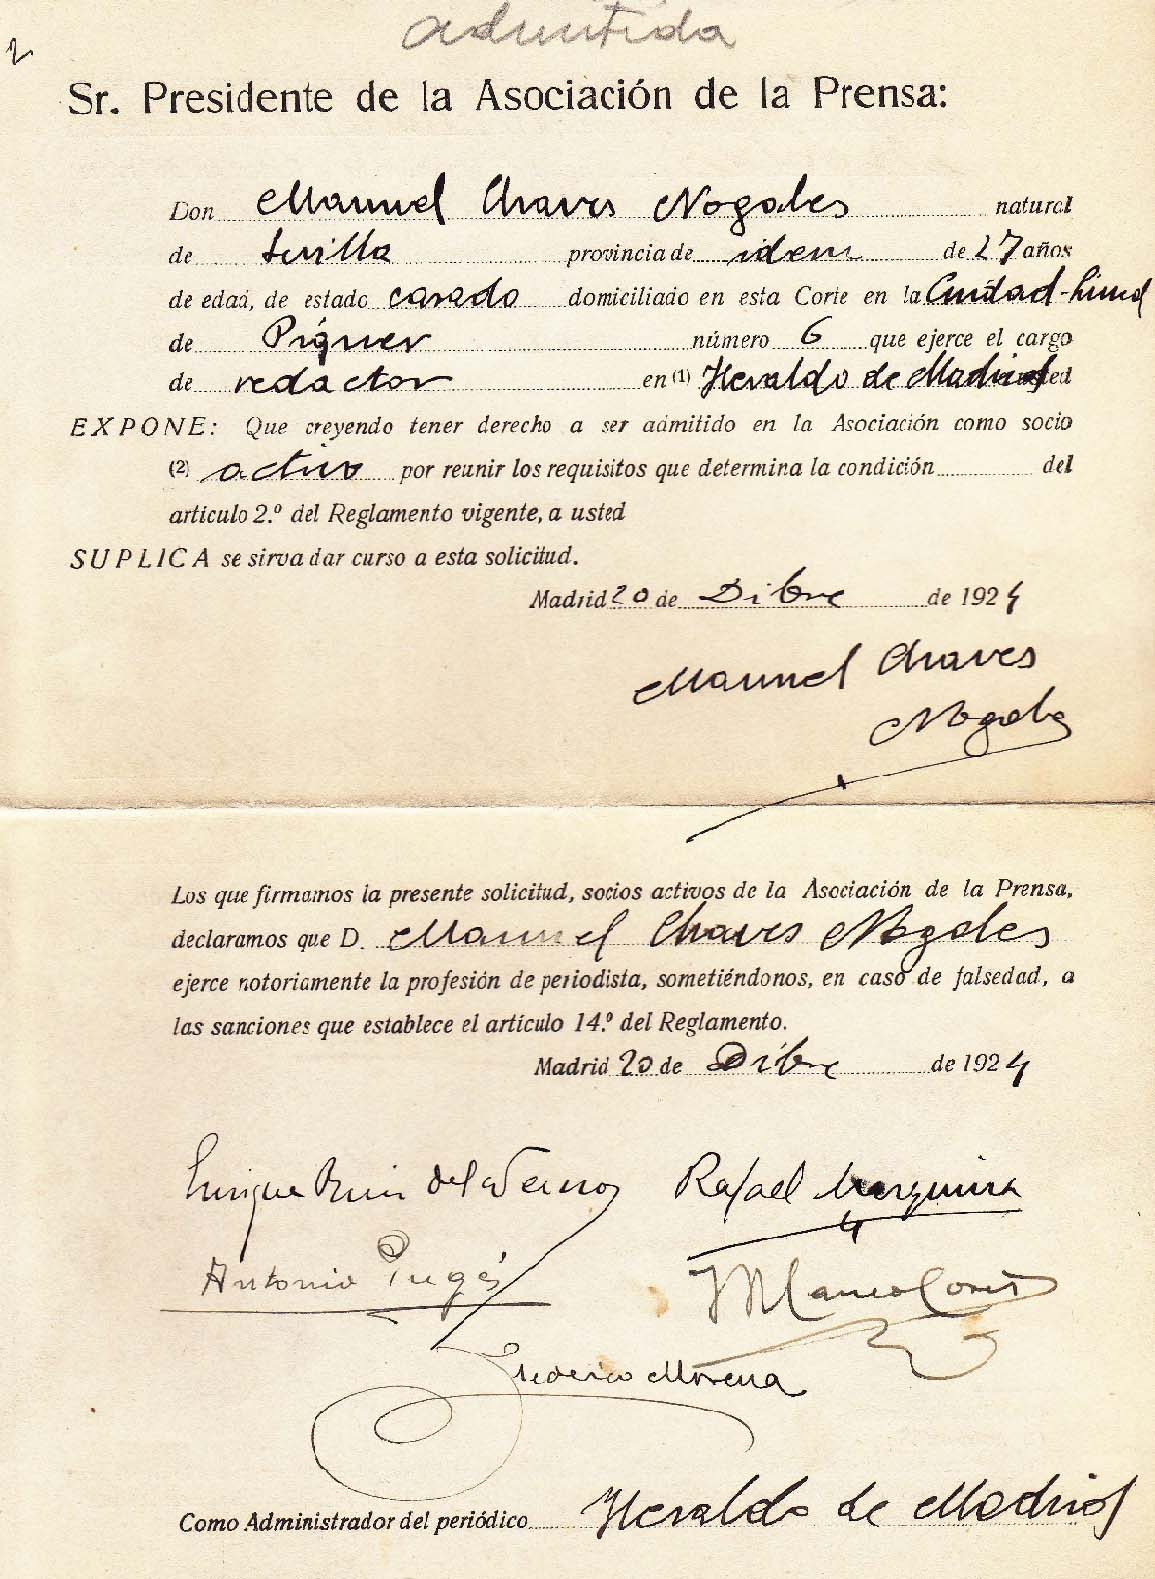 admitida
2
Sr. Presidente de la Asociación de la Prensa:
Don Manuel Chaves Nogales natural
de Sevilla provincia de idem de 27 años
de edad, de estado casado domiciliado en esta Corte en la Ciudad-Lineal
de Piquer número 6 que ejerce el cargo
de redactor en (1) Heraldo de Madrid
EXPONE: Que creyendo tener derecho a ser admitido en la Asociación como socio
(2) activo por reunir los requisitos que determina la condición del
articulo 2.º del Reglamento vigente, a usted
SUPLICA se sirva dar curso a esta solicitud.
Madrid 20 de Dibre de 1924
Manuel Chaves
Nogales
Los que firmamos la presente solicitud, socios activos de la Asociación de la Prensa,
declaramos que D. Manuel Chaves Nogales
ejerce notoriamente la profesión de periodista, sometiéndonos, en caso de falsedad, a
las sanciones que establece el artículo 14.º del Reglamento.
Madrid 20 de Dibre de 1924
Enrique Ruiz del Rafael Marquina
Antonio
Federico Morena
Como Administrador del periódico Heraldo de Madrid